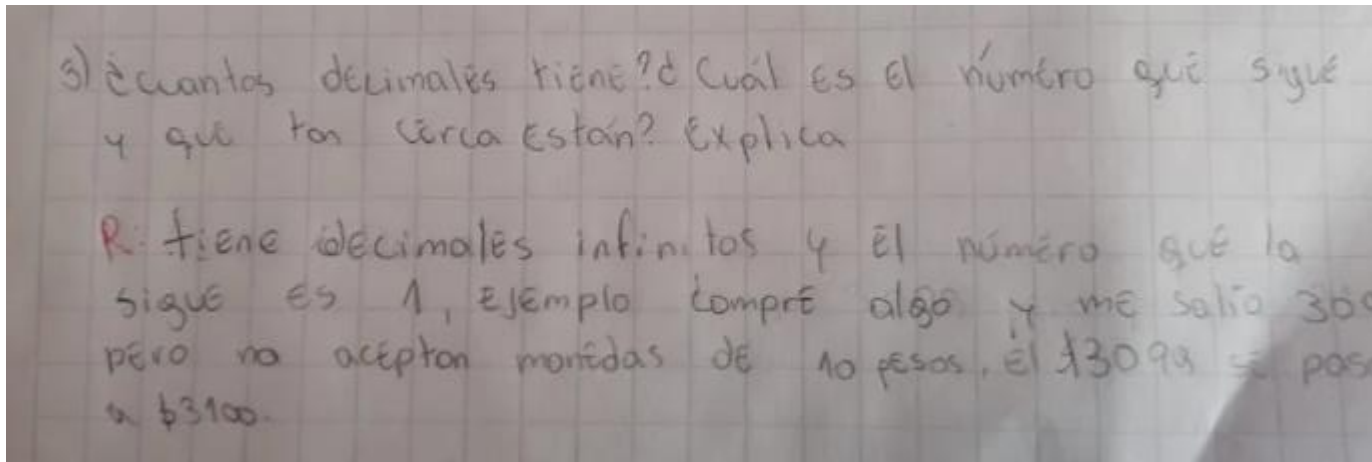 3) ¿cuantos decimales tiene? ¿Cuál es el número que sigue
y que tan cerca están? Explica
R: tiene decimales infinitos y el número que la
sigue es 1, Ejemplo compré algo y me salio 30
pero no aceptan monedas de 10 pesos, el $3099 se pas
a $3100.